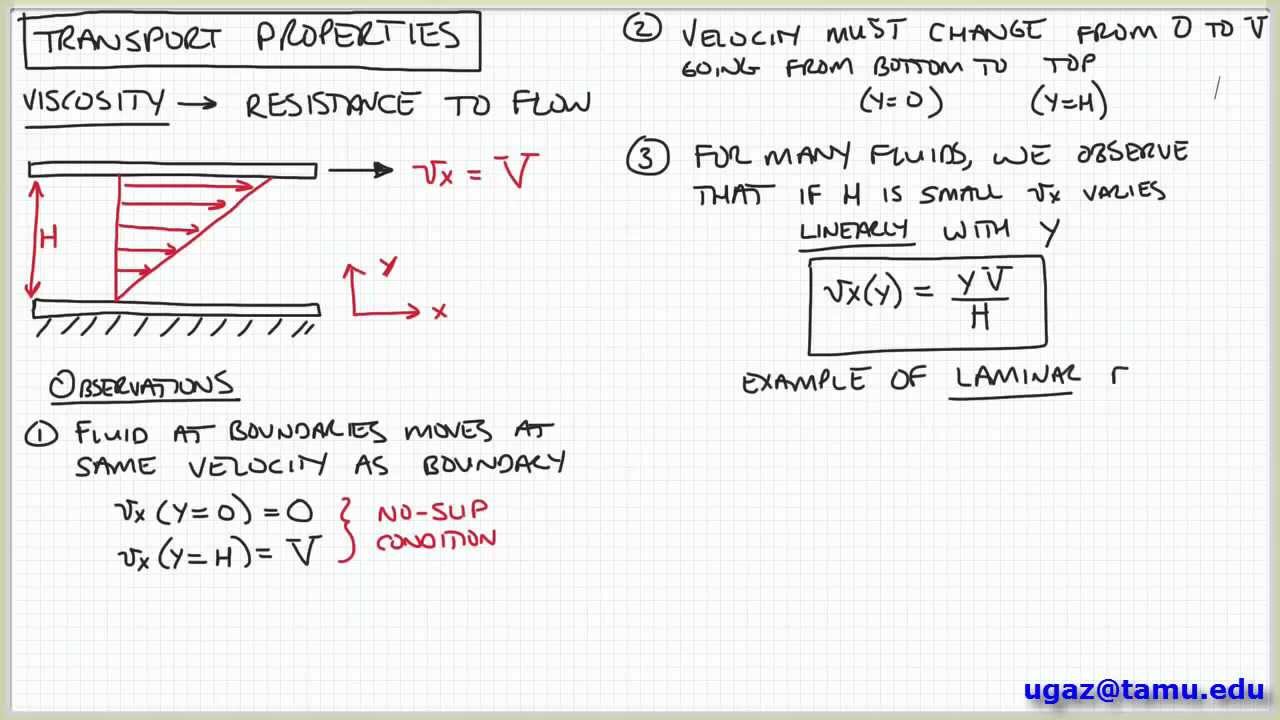 TRANSPORT PROPERTIES
VISCOSITY → RESISTANCE TO FLOW
vx = V
H
Y
X
OBSERVATIONS
① FLUID AT BOUNDARIES MOVES AT
SAME VELOCITY AS BOUNDARY
vx (Y=0) = 0
vx (Y=H) = V
NO-SLIP
CONDITION
② VELOCITY MUST CHANGE FROM 0 TO V
GOING FROM BOTTOM TO TOP
(Y=0) (Y=H)
③ FOR MANY FLUIDS, WE OBSERVE
THAT IF H IS SMALL vx VARIES
LINEARLY WITH Y
vx(Y) = YV/H
EXAMPLE OF LAMINAR
ugaz@tamu.edu